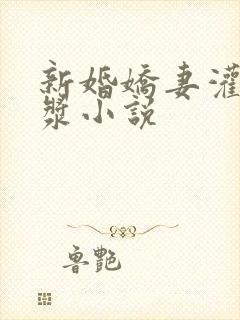 新婚嬌妻灌
漿小說
魯艷